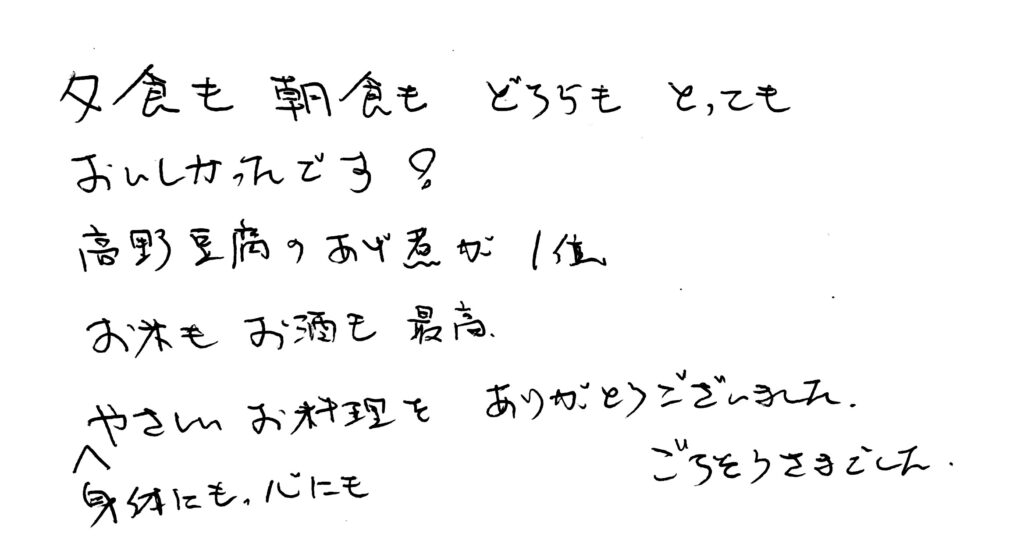 夕食も 朝食も どちらも とっても
おいしかったです!
高野豆腐のあげ煮が 1位
お米も お酒も 最高.
やさしい お料理を ありがとうございました.
身体にも、心にも
ごちそうさまでした.